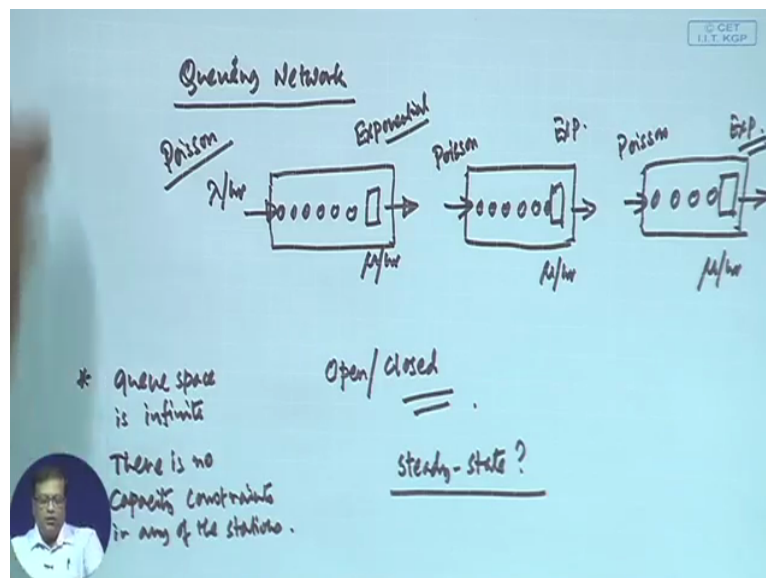 © CET
I.I.T. KGP
Queuing Network
Poisson
Exponential
Poisson
Exp.
Poisson
Exp.
λ/hr
μ/hr
μ/hr
μ/hr
* Queue space
is infinite
There is no
capacity constraints
in any of the stations.
Open/Closed
Steady-state?